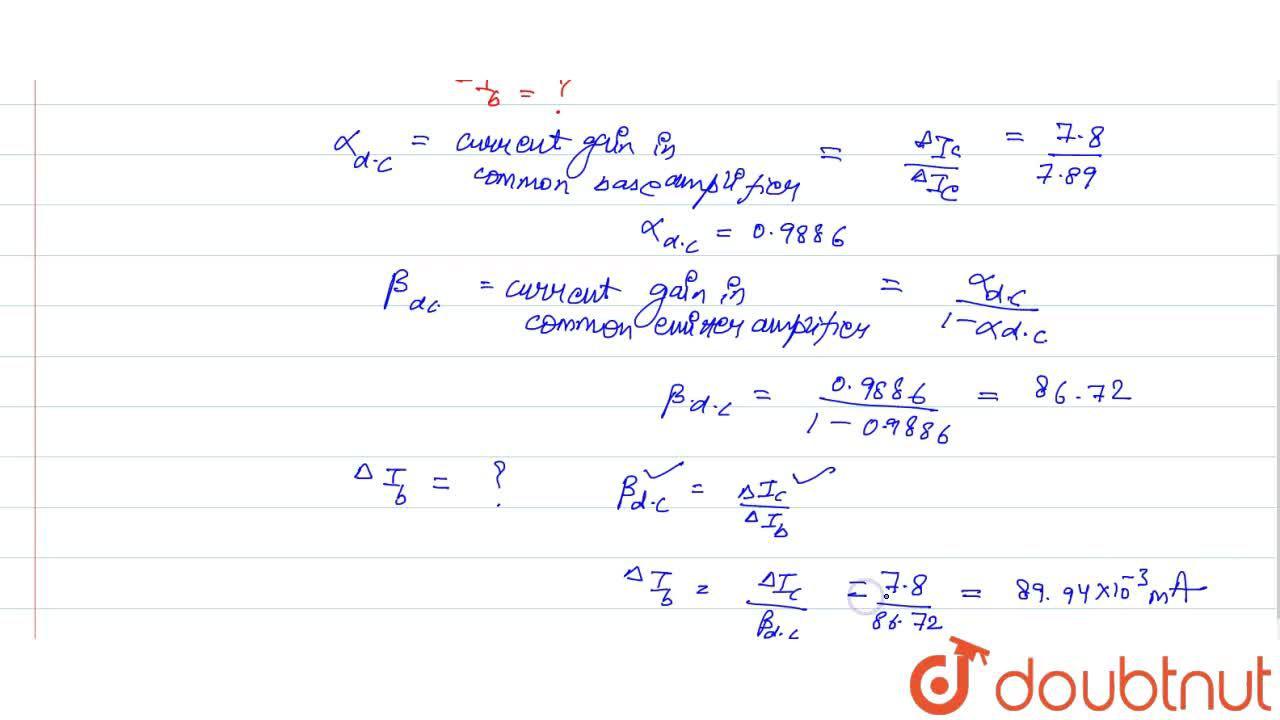 I_b = ?
α_d.c = current gain in common base amplifier = ΔI_c / ΔI_C = 7.8 / 7.89
α_d.c = 0.9886
β_dc = current gain in common emitter amplifier = α_d.c / 1 - α_d.c
β.d.c = 0.9886 / 1 - 0.9886 = 86.72
ΔI_b = ? β_d.c = ΔI_c / ΔI_b
ΔI_b = ΔI_c / β_d.c = 7.8 / 86.72 = 89.94 × 10^-3 mA
doubtnut